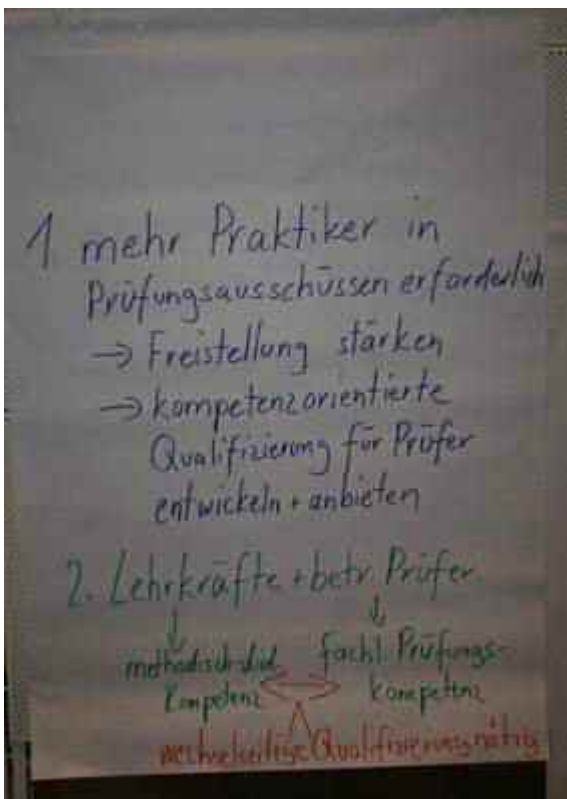 1 mehr Praktiker in
Prüfungsausschüssen erforderlich
→ Freistellung stärken
→ kompetenzorientierte
Qualifizierung für Prüfer
entwickeln + anbieten
2. Lehrkräfte + betr. Prüfer
↓ ↓
methodisch-did. fachl. Prüfungs-
Kompetenz kompetenz
wechselseitige Qualifizierung nötig